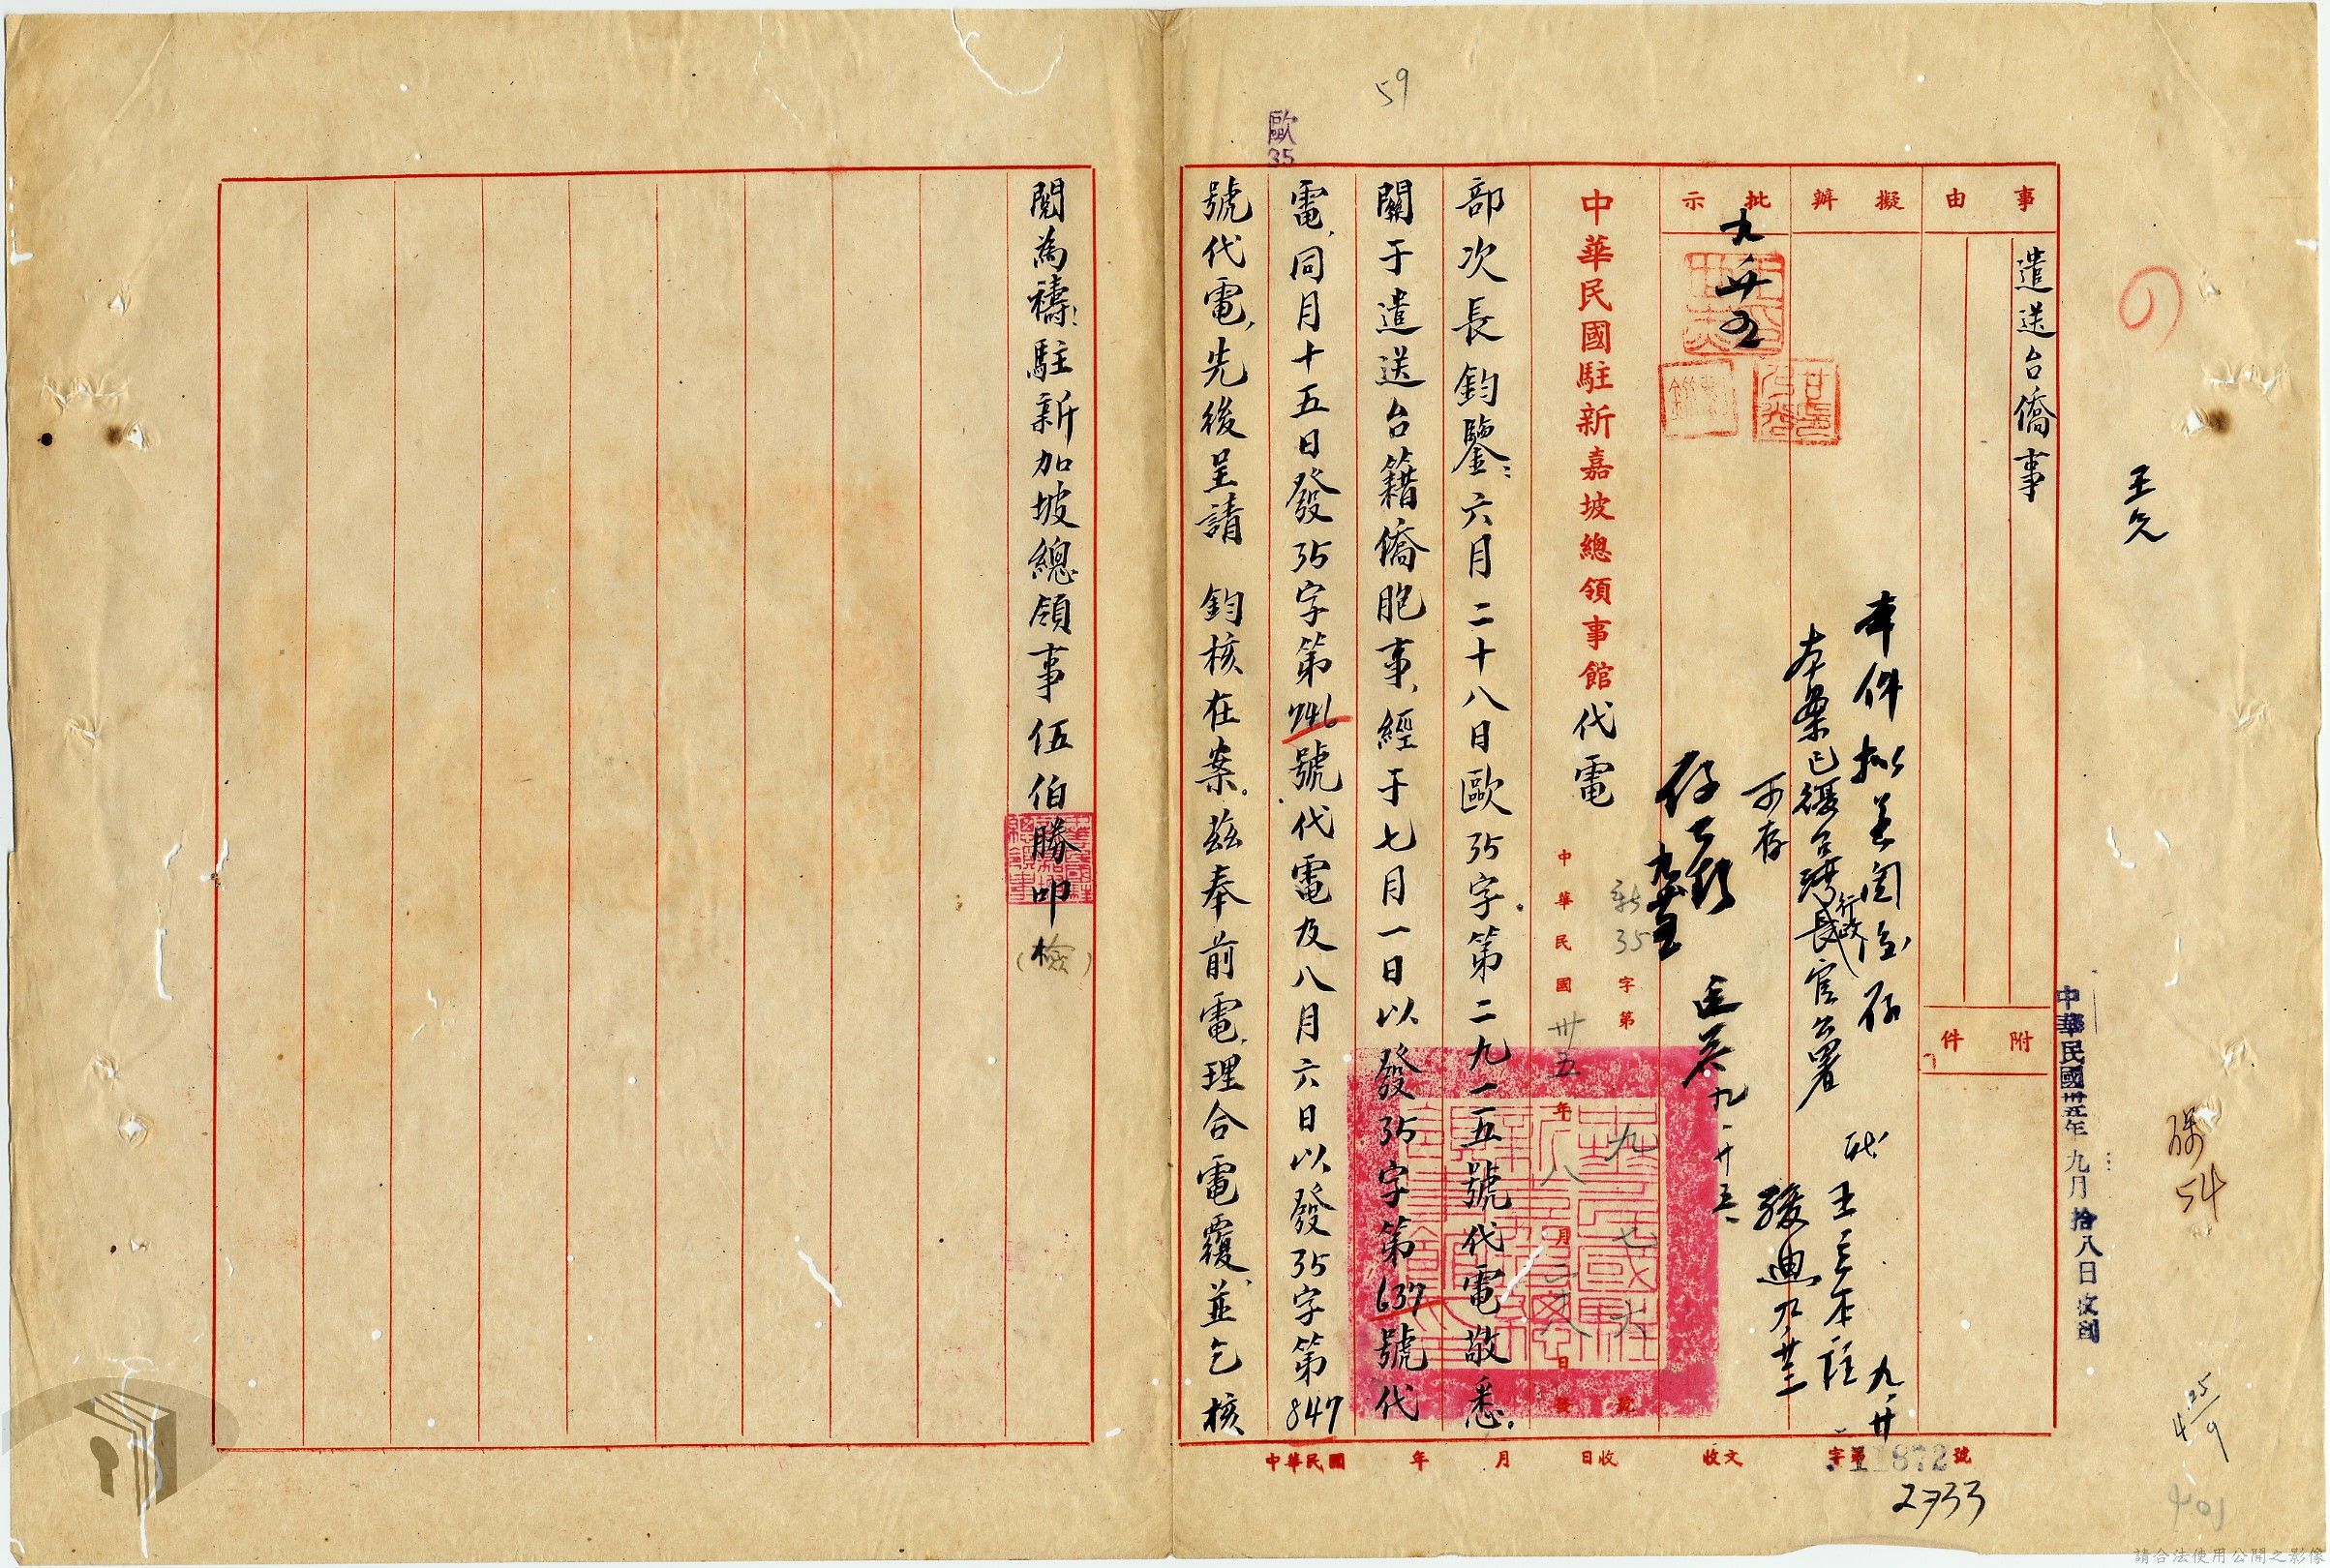 59
歐
35
事由
遣送台僑事
附件
擬辦
本件擬差閱後存
本案已復台灣行政長官公署
可存
批示
九 廿五
存
九 廿五
中華民國駐新嘉坡總領事館代電
新35字第九七六號
中華民國卅五年八月二八日發
部次長鈞鑒:六月二十八日歐35字。第二九一五號代電敬悉。
關于遣送台籍僑胞事,經于七月一日以發35字第637號代
電,同月十五日發35字第746號代電及八月六日以發35字第847
號代電,先後呈請 鈞核在案。茲奉前電,理合電覆,並乞核
閱為禱!駐新加坡總領事伍伯勝叩(檢)
中華民國卅五年九月拾八日收到
54
25/9
401
中華民國 年 月 日收 收文 字第11872號
2733
請合法使用公開之影像